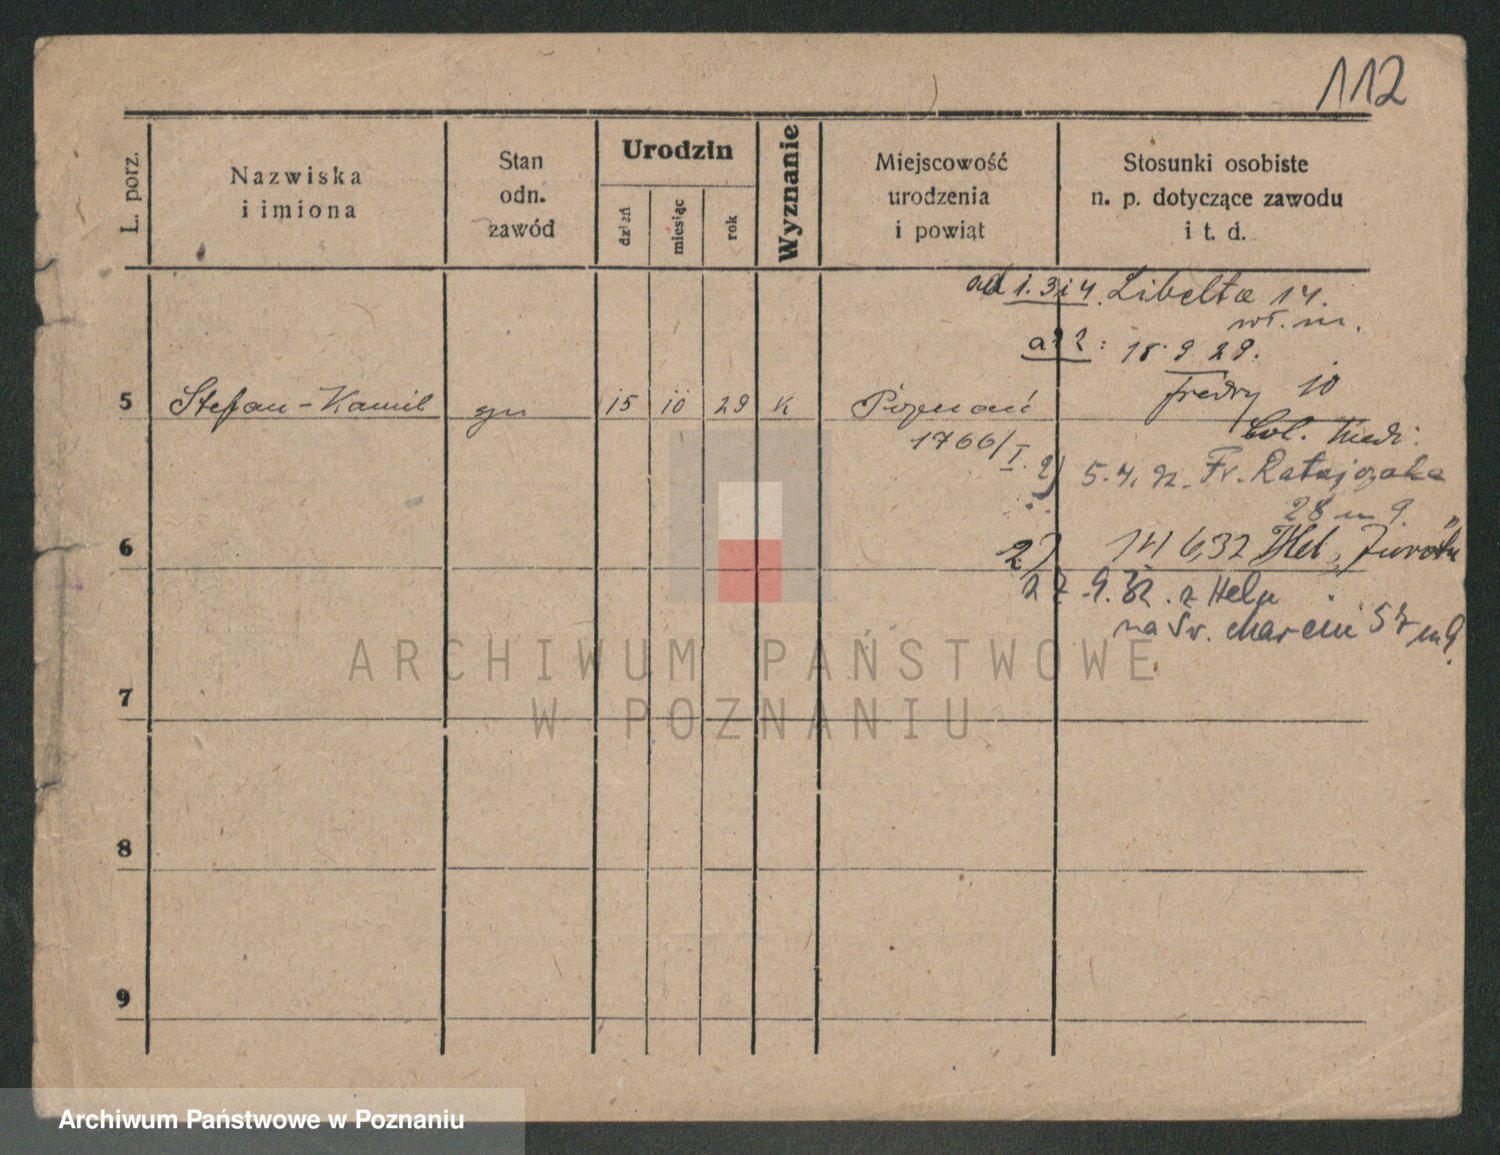 112
L. porz.
Nazwiska
i imiona
Stan
odn.
zawód
Urodzin
dzień
miesiąc
rok
Wyznanie
Miejscowość
urodzenia
i powiąt
Stosunki osobiste
n. p. dotyczące zawodu
i t. d.
ad 1. 3 i 4. Libelta 14.
wł. m.
ad 2: 18. 9. 29.
Fredry 10
5 Stefan-Kamil gu 15 10 29 K Poznań
1766/I. 2) 5. 4. 32. Fr. Ratajczaka
28 m 9.
6
2) 14 6.32 Hel,
27. 9. 32. z Helu
na Św. Marcin 57 m 9.
7
8
9
ARCHIWUM PAŃSTWOWE
W POZNANIU
Archiwum Państwowe w Poznaniu